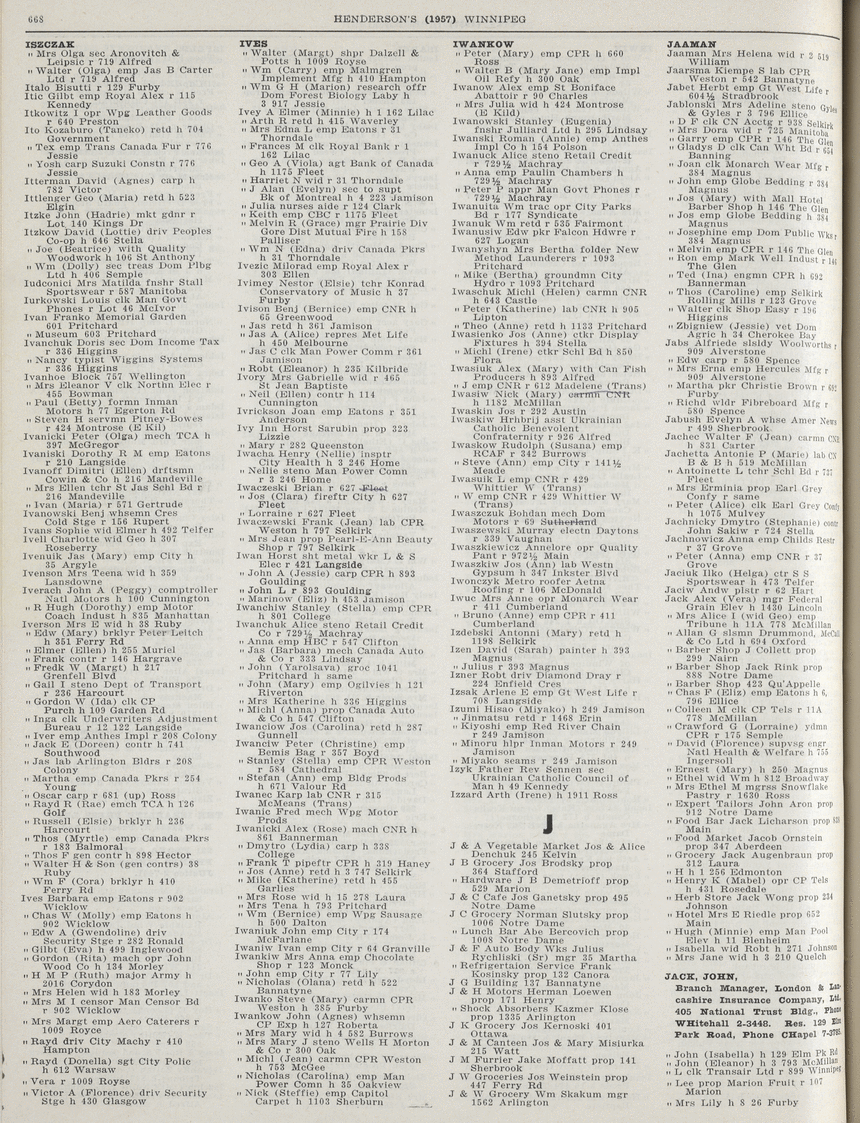 668
HENDERSON'S (1957) WINNIPEG
ISZCZAK
" Mrs Olga sec Aronovitch &
Leipsic r 719 Alfred
" Walter (Olga) emp Jas B Carter
Ltd r 719 Alfred
Italo Bisutti r 129 Furby
Itic Gilbt emp Royal Alex r 115
Kennedy
Itkowitz I opr Wpg Leather Goods
r 640 Preston
Ito Kozaburo (Taneko) retd h 704
Government
" Tex emp Trans Canada Fur r 776
Jessie
" Yosh carp Suzuki Constn r 776
Jessie
Itterman David (Agnes) carp h
782 Victor
Ittlenger Geo (Maria) retd h 523
Elgin
Itzke John (Hadrie) mkt gdnr r
Lot 140 Kings Dr
Itzkow David (Lottie) driv Peoples
Co-op h 646 Stella
" Joe (Beatrice) with Quality
Woodwork h 106 St Anthony
" Wm (Dolly) sec treas Dom Plbg
Ltd h 406 Semple
Iudconici Mrs Matilda fnshr Stall
Sportswear r 587 Manitoba
Iurkowski Louis clk Man Govt
Phones r Lot 46 McIvor
Ivan Franko Memorial Garden
601 Pritchard
" Museum 603 Pritchard
Ivanchuk Doris sec Dom Income Tax
r 336 Higgins
" Nancy typist Wiggins Systems
r 336 Higgins
Ivanhoe Block 757 Wellington
" Mrs Eleanor V clk Northn Elec r
455 Bowman
" Paul (Betty) formn Inman
Motors h 77 Egerton Rd
" Steven H servmn Pitney-Bowes
r 424 Montrose (E Kil)
Ivanicki Peter (Olga) mech TCA h
397 McGregor
Ivaniski Dorothy R M emp Eatons
r 210 Langside
Ivanoff Dimitri (Ellen) drftsmn
Cowin & Co h 216 Mandeville
" Mrs Ellen tchr St Jas Schl Bd r
216 Mandeville
" Ivan (Maria) r 571 Gertrude
Ivanowski Benj whsemn Cres
Cold Stge r 156 Rupert
Ivans Sophie wid Elmer h 492 Telfer
Ivell Charlotte wid Geo h 307
Roseberry
Ivenuik Jas (Mary) emp City h
35 Argyle
Ivenson Mrs Teena wid h 359
Lansdowne
Iverach John A (Peggy) comptroller
Natl Motors h 100 Cunnington
" R Hugh (Dorothy) emp Motor
Coach Indust h 835 Manhattan
Iverson Mrs E wid h 38 Ruby
" Edw (Mary) brklyr Peter Leitch
h 351 Ferry Rd
" Elmer (Ellen) h 255 Muriel
" Frank contr r 146 Hargrave
" Fredk W (Margt) h 217
Grenfell Blvd
" Gail I steno Dept of Transport
r 236 Harcourt
" Gordon W (Ida) clk CP
Purch h 109 Garden Rd
" Inga clk Underwriters Adjustment
Bureau r 12 122 Langside
" Iver emp Anthes Impl r 208 Colony
" Jack E (Doreen) contr h 741
Southwood
" Jas lab Arlington Bldrs r 208
Colony
" Martha emp Canada Pkrs r 254
Young
" Oscar carp r 681 (up) Ross
" Rayd R (Rae) emch TCA h 126
Golf
" Russell (Elsie) brklyr h 236
Harcourt
" Thos (Myrtle) emp Canada Pkrs
r 183 Balmoral
" Thos F gen contr h 898 Hector
" Walter H & Son (gen contrs) 38
Ruby
" Wm F (Cora) brklyr h 410
Ferry Rd
Ives Barbara emp Eatons r 902
Wicklow
" Chas W (Molly) emp Eatons h
902 Wicklow
" Edw A (Gwendoline) driv
Security Stge r 282 Ronald
" Gilbt (Eva) h 499 Inglewood
" Gordon (Rita) mach opr John
Wood Co h 134 Morley
" H M P (Ruth) major Army h
2016 Corydon
" Mrs Helen wid h 183 Morley
" Mrs M I censor Man Censor Bd
r 902 Wicklow
" Mrs Margt emp Aero Caterers r
1009 Royce
" Rayd driv City Machry r 410
Hampton
" Rayd (Donella) sgt City Polic
h 612 Warsaw
" Vera r 1009 Royse
" Victor A (Florence) driv Security
Stge h 430 Glasgow
IVES
" Walter (Margt) shpr Dalzell &
Potts h 1009 Royse
" Wm (Carry) emp Malmgren
Implement Mfg h 410 Hampton
" Wm G H (Marion) research offr
Dom Forest Biology Laby h
3 917 Jessie
Ivey A Elmer (Minnie) h 1 162 Lilac
" Arth R retd h 415 Waverley
" Mrs Edna L emp Eatons r 31
Thorndale
" Frances M clk Royal Bank r 1
162 Lilac
" Geo A (Viola) agt Bank of Canada
h 1175 Fleet
" Harriet N wid r 31 Thorndale
" J Alan (Evelyn) sec to supt
Bk of Montreal h 4 223 Jamison
" Julia nurses aide r 124 Clark
" Keith emp CBC r 1175 Fleet
" Melvin R (Grace) mgr Prairie Div
Gore Dist Mutual Fire h 158
Palliser
" Wm N (Edna) driv Canada Pkrs
h 31 Thorndale
Ivezic Milorad emp Royal Alex r
303 Ellen
Ivimey Nestor (Elsie) tchr Konrad
Conservatory of Music h 37
Furby
Ivison Benj (Bernice) emp CNR h
65 Greenwood
" Jas retd h 361 Jamison
" Jas A (Alice) repres Met Life
h 450 Melbourne
" Jas C clk Man Power Comm r 361
Jamison
" Robt (Eleanor) h 235 Kilbride
Ivory Mrs Gabrielle wid r 465
St Jean Baptiste
" Neil (Ellen) contr h 114
Cunnington
Ivrickson Joan emp Eatons r 351
Anderson
Ivy Inn Horst Sarubin prop 323
Lizzie
" Mary r 282 Queenston
Iwacha Henry (Nellie) insptr
City Health h 3 246 Home
" Nellie steno Man Power Comn
r 3 246 Home
Iwaczeski Brian r 627 Fleet
" Jos (Clara) fireftr City h 627
Fleet
" Lorraine r 627 Fleet
Iwaczewski Frank (Jean) lab CPR
Weston h 797 Selkirk
" Mrs Jean prop Pearl-E-Ann Beauty
Shop r 797 Selkirk
Iwan Horst sht metal wkr L & S
Elec r 421 Langside
" John A (Jessie) carp CPR h 893
Goulding
" John L r 893 Goulding
" Marinow (Ellen) h 453 Jamison
Iwanchiw Stanley (Stella) emp CPR
h 801 College
Iwanchuk Alice steno Retail Credit
Co r 729½ Machray
" Anna emp HBC r 547 Clifton
" Jas (Barbara) mech Canada Auto
& Co r 333 Lindsay
" John (Yarolsava) groc 1041
Pritchard h same
" John (Mary) emp Ogilvies h 121
Riverton
" Mrs Katherine h 336 Higgins
" Michl (Anna) prop Canada Auto
& Co h 547 Clifton
Iwanciow Jos (Carolina) retd h 287
Gunnell
Iwanciw Peter (Christine) emp
Bemis Bag r 357 Boyd
" Stanley (Stella) emp CPR Weston
r 584 Cathedral
" Stefan (Ann) emp Bldg Prods
h 671 Valour Rd
Iwanec Karp lab CNR r 315
McMeans (Trans)
Iwanic Fred mech Wpg Motor
Prods
Iwanicki Alex (Rose) mach CNR h
861 Bannerman
" Dmytro (Lydia) carp h 338
College
" Frank T pipeftr CPR h 319 Haney
" Jos (Anne) retd h 3 747 Selkirk
" Mike (Katherine) retd h 455
Garlies
" Mrs Rose wid h 15 278 Laura
" Mrs Tena h 793 Pritchard
" Wm (Bernice) emp Wpg Sausage
h 500 Dalton
Iwaniuk John emp City r 174
McFarlane
Iwaniw Ivan emp City r 64 Granville
Iwankiw Mrs Anna emp Chocolate
Shop r 123 Monck
" John emp City r 77 Lily
" Nicholas (Olana) retd h 522
Bannatyne
Iwanko Steve (Mary) carmn CPR
Weston h 385 Furby
Iwankow John (Agnes) whsemn
CP Exp h 127 Roberta
" Mrs Mary wid h 4 582 Burrows
" Mrs Mary J steno Wells H Morton
& Co r 300 Oak
" Michl (Jean) carmn CPR Weston
h 753 McGee
" Nicholas (Carolina) emp Man
Power Comn h 35 Oakview
" Nick (Steffie) emp Capitol
Carpet h 1103 Sherburn
IWANKOW
" Peter (Mary) emp CPR h 660
Ross
" Walter B (Mary Jane) emp Impl
Oil Refy h 300 Oak
Iwanow Alex emp St Boniface
Abattoir r 90 Charles
" Mrs Julia wid h 424 Montrose
(E Kild)
Iwanowski Stanley (Eugenia)
fnshr Julliard Ltd h 295 Lindsay
Iwanski Roman (Annie) emp Anthes
Impl Co h 154 Polson
Iwanuck Alice steno Retail Credit
r 729½ Machray
" Anna emp Paulin Chambers h
729½ Machray
" Peter P appr Man Govt Phones r
729½ Machray
Iwanuita Wm trac opr City Parks
Bd r 177 Syndicate
Iwanuk Wm retd r 535 Fairmont
Iwanusiw Edw pkr Falcon Hdwre r
627 Logan
Iwanyshyn Mrs Bertha folder New
Method Launderers r 1093
Pritchard
" Mike (Bertha) groundmn City
Hydro r 1093 Pritchard
Iwaschuk Michl (Helen) carmn CNR
h 643 Castle
" Peter (Katherine) lab CNR h 905
Lipton
" Theo (Anne) retd h 1133 Pritchard
Iwasienko Jos (Anne) ctkr Display
Fixtures h 394 Stella
" Michl (Irene) ctkr Schl Bd h 850
Flora
Iwasiuk Alex (Mary) with Can Fish
Producers h 893 Alfred
" J emp CNR r 612 Madelene (Trans)
Iwasiw Nick (Mary) carmn CNR
h 1182 McMillan
Iwaskin Jos r 292 Austin
Iwaskiw Hrhbrij asst Ukrainian
Catholic Benevolent
Confraternity r 926 Alfred
Iwaskow Rudolph (Susana) emp
RCAF r 342 Burrows
" Steve (Ann) emp City r 141½
Meade
Iwasuik L emp CNR r 429
Whittier W (Trans)
" W emp CNR r 429 Whittier W
(Trans)
Iwaszczuk Bohdan mech Dom
Motors r 69 Sutherland
Iwaszewski Murray electn Daytons
r 339 Vaughan
Iwaszkiewicz Annelore opr Quality
Pant r 972½ Main
Iwaszkiw Jos (Ann) lab Westn
Gypsum h 347 Inkster Blvd
Iwonczyk Metro roofer Aetna
Roofing r 106 McDonald
Iwuc Mrs Anne opr Monarch Wear
r 411 Cumberland
" Bruno (Anne) emp CPR r 411
Cumberland
Izdebski Antonni (Mary) retd h
1198 Selkirk
Izen David (Sarah) painter h 393
Magnus
" Julius r 393 Magnus
Izner Robt driv Diamond Dray r
224 Enfield Cres
Izsak Arlene E emp Gt West Life r
708 Langside
Izumi Hisao (Miyako) h 249 Jamison
" Jinmatsu retd r 1468 Erin
" Kiyoshi emp Red River Chain
r 249 Jamison
" Minoru hlpr Inman Motors r 249
Jamison
" Miyako seams r 249 Jamison
Izyk Father Rev Sennen sec
Ukrainian Catholic Council of
Man h 49 Kennedy
Izzard Arth (Irene) h 1911 Ross
J
J & A Vegetable Market Jos & Alice
Denchuk 245 Kelvin
J B Grocery Jos Brodsky prop
364 Stafford
" Hardware J B Demetrioff prop
529 Marion
J & C Cafe Jos Ganetsky prop 495
Notre Dame
J C Grocery Norman Slutsky prop
1006 Notre Dame
" Lunch Bar Abe Hercovich prop
1008 Notre Dame
J & F Auto Body Wks Julius
Rychliski (Sr) mgr 35 Martha
" Refrigertaion Service Frank
Kosinsky prop 132 Canora
J G Building 137 Bannatyne
J & H Motors Herman Loewen
prop 171 Henry
" Shock Absorbers Kazmer Klose
prop 1335 Arlington
J K Grocery Jos Kernoski 401
Ottawa
J & M Canteen Jos & Mary Misiurka
215 Watt
J M Furrier Jake Moffatt prop 141
Sherbrook
J W Groceries Jos Weinstein prop
447 Ferry Rd
J & W Grocery Wm Skakum mgr
1562 Arlington
JAAMAN
Jaaman Mrs Helena wid r 2 519
William
Jaarsma Kiempe S lab CPR
Weston r 542 Bannatyne
Jabet Herbt emp Gt West Life r
604½ Stradbrook
Jablonski Mrs Adeline steno Gyles
& Gyles r 3 796 Ellice
" D F clk CN Acctg r 938 Selkirk
" Mrs Dora wid r 725 Manitoba
" Garry emp CPR r 146 The Glen
" Gladys D clk Can Wht Bd r 654
Banning
" Joan clk Monarch Wear Mfg r
384 Magnus
" John emp Globe Bedding r 384
Magnus
" Jos (Mary) with Mall Hotel
Barber Shop h 146 The Glen
" Jos emp Globe Bedding h 384
Magnus
" Josephine emp Dom Public Wks r
384 Magnus
" Melvin emp CPR r 146 The Glen
" Ron emp Mark Well Indust r 146
The Glen
" Ted (Ina) engmn CPR h 692
Bannerman
" Thos (Caroline) emp Selkirk
Rolling Mills r 123 Grove
" Walter clk Shop Easy r 196
Higgins
" Zbigniew (Jessie) vet Dom
Agric h 34 Cherokee Bay
Jabs Alfriede slsldy Woolworths r
909 Alverstone
" Edw carp r 580 Spence
" Mrs Erna emp Hercules Mfg r
909 Alverstone
" Martha pkr Christie Brown r 692
Furby
" Richd wldr Fibreboard Mfg r
580 Spence
Jabush Evelyn A whse Amer News
r 499 Sherbrook
Jachec Walter F (Jean) carmn CNR
h 831 Carter
Jachetta Antonie P (Marie) lab CN
B & B h 519 McMillan
" Antoinette L tchr Schl Bd r 727
Fleet
" Mrs Erminia prop Earl Grey
Confy r same
" Peter (Alice) clk Earl Grey Confy
h 1075 Mulvey
Jachnicky Dmytro (Stephanie) contr
John Sakiw r 724 Stella
Jachnowicz Anna emp Childs Restr
r 37 Grove
" Peter (Anna) emp CNR r 37
Grove
Jaciuk Ilko (Helga) ctr S S
Sportswear h 473 Telfer
Jaciw Andw plstr r 62 Hart
Jack Alex (Vera) mgr Federal
Grain Elev h 1430 Lincoln
" Mrs Alice I (wid Geo) emp
Tribune h 11A 778 McMillan
" Allan G slsmn Drummond,
& Co Ltd h 694 Oxford
" Barber Shop J Collett prop
299 Nairn
" Barber Shop Jack Rink prop
888 Notre Dame
" Barber Shop 423 Qu'Appelle
" Chas F (Eliz) emp Eatons h 6,
796 Ellice
" Colleen M clk CP Tels r 11A
778 McMillan
" Crawford G (Lorraine) ydmn
CPR r 175 Semple
" David (Florence) supvsg engr
Natl Health & Welfare h 755
Ingersoll
" Ernest (Mary) h 250 Magnus
" Ethel wid Wm h 812 Broadway
" Mrs Ethel M mgrss Snowflake
Pastry r 1630 Ross
" Expert Tailors John Aron prop
912 Notre Dame
" Food Bar Jack Licharson prop
Main
" Food Market Jacob Ornstein
prop 347 Aberdeen
" Grocery Jack Augenbraun prop
312 Laura
" H h 1 256 Edmonton
" Henry K (Mabel) opr CP Tels
h 431 Rosedale
" Herb Store Jack Wong prop 234
Johnson
" Hotel Mrs E Riedle prop 652
Main
" Hugh (Minnie) emp Man Pool
Elev h 11 Blenheim
" Isabella wid Robt h 271 Johnson
" Mrs Jane wid h 3 210 Quelch
JACK, JOHN,
Branch Manager, London & Lan-
cashire Insurance Company, Ltd.
405 National Trust Bldg., Phone
WHitehall 2-3448. Res. 129 Elm
Park Road, Phone CHapel 7-3785
" John (Isabella) h 129 Elm Pk Rd
" John (Eleanor) h 3 793 McMillan
" L clk Transair Ltd r 899 Winnipeg
" Lee prop Marion Fruit r 107
Marion
" Mrs Lily h 8 26 Furby